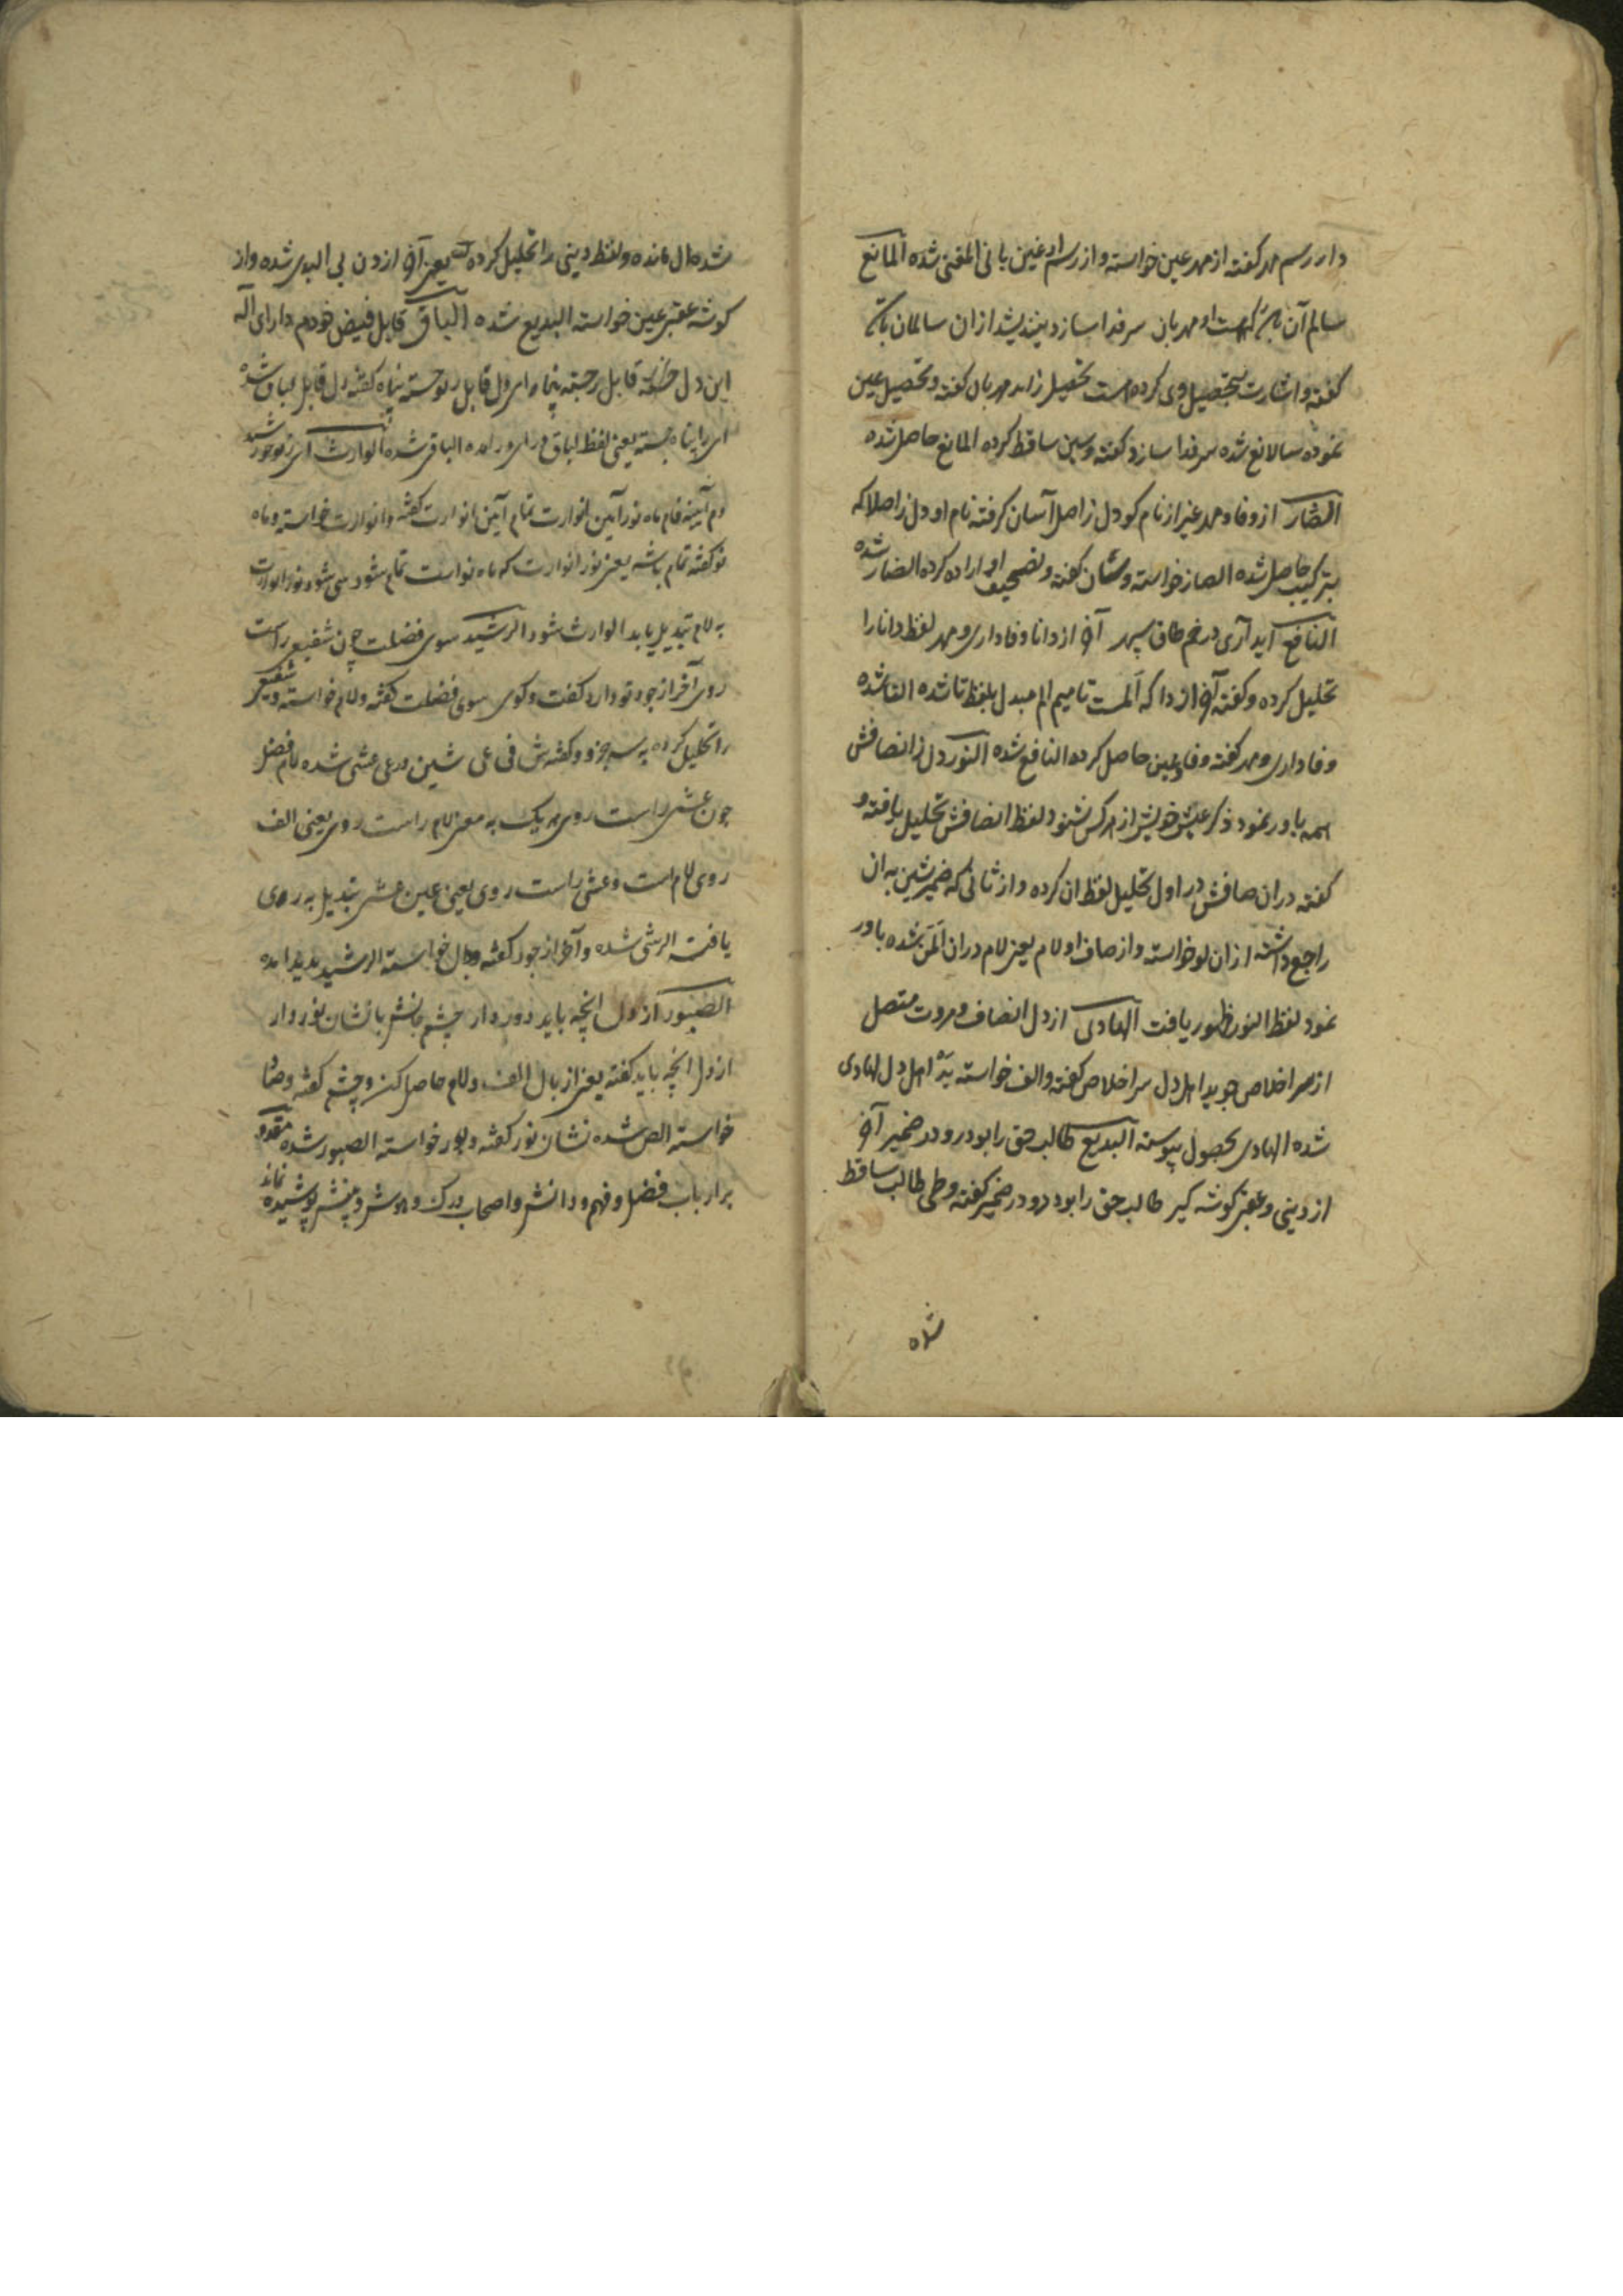 دارد رسم مهر گفته از مهر عین خواسته و از رسم او غین یا نی المغنی شده المانع
سالم آن به که هست او مهربان سر فدا سازد بیندیشد از آن سالمان
گفته و اشارت بتحصیل وی کرده است تحصیل زاید مهربان گفته و تحصیل عین
نموده سالانع شده سر فدا سازد گفته و سین ساقط کرده المانع حاصل شده
الضار از وفا و مهر غیر از نام کو دل ز اصل آسان گرفته نام او دل ز اصلا که
بترکیب حاصل شده الصاز خواسته و نشان گفته و تصحیف او اراده کرده الضار شده
النافع آید آری در خم طاق سپهر آخر از دانا وفاداری و مهر لفظ دانا را
تحلیل کرده و گفته آخر از دا که الم است تا میم الم مبدل بلفظ نا شده النا شده
وفاداری و مهر گفته و فا و عین حاصل کرده النافع شده النور دل ز انصافش
همه باور نمود ذکر عیش خویش از هر کس شنود لفظ انصافش تحلیل یافته و
گفته در ان صافش در اول تحلیل لفظ ان کرده و از ثانی که ضمیر شین به ان
راجع داشته از ان لو خواسته و از صاف او لام یعنی لام در ان الن شده باور
نمود لفظ النور ظهور یافت الهادی از دل انصاف و مروت متصل
از سر اخلاص جوید اهل دل سر اخلاص گفته و الف خواسته اهل دل لهادی
شده الهادی بحصول پیوسته البدیع طالب حق را بود رو در ضمیر آخر
از دینی و عقبی گوشه گیر طالب حق را بود رو در ضمیر گفته و طی طالب ساقط
شده
شده ال مانده و لفظ دینی را تحلیل کرده یعنی آخر از دن بی البدی شده و از
گوشه عقبی عین خواسته البدیع شده الباقی قابل فیض خودم دارای اله
این دل خسته قابل جسته پناه
ای را پناه جسته یعنی لفظ لباق در ای در آمده الباقی شده الوارث
دم آیینه فام ماه نو آیین انوارت تمام آیین انوارت گفته و انوارت خواسته و ماه
نو گفته تمام باشد یعنی نور انوارت که ماه نو است تمام شود سی شود نور انوارت
به لام تبدیل یابد الوارث شود الرشید سوی فضلت چون شفیعی راست
روی آخر از جود تو دارد گفت و کوی سوی فضلت گفته و لام خواسته و شفیعی
را تحلیل کرده به سه جزو و گفته ش فی عی شین در عی عشی شده لام فضل
چون عشی راست روی هر یک به معنی لام راست روی یعنی الف
روی لام است و عشی راست روی یعنی عین عشی تبدیل به ر وی
یافت الرشی شده و آخر از جود گفته و دال خواسته الرشید پدید آمده
الصبور از دل انچه باید دور دار چشم جانش با نشان نور دار
از دل انچه باید گفته یعنی از بال الف و لام حاصل کن و چشم گفته و صاد
خواسته الص شده نشان نور گفته و بور خواسته الصبور شده
بر ارباب فضل و فهم و دانش و اصحاب درک و هوش و بینش پوشیده نماند